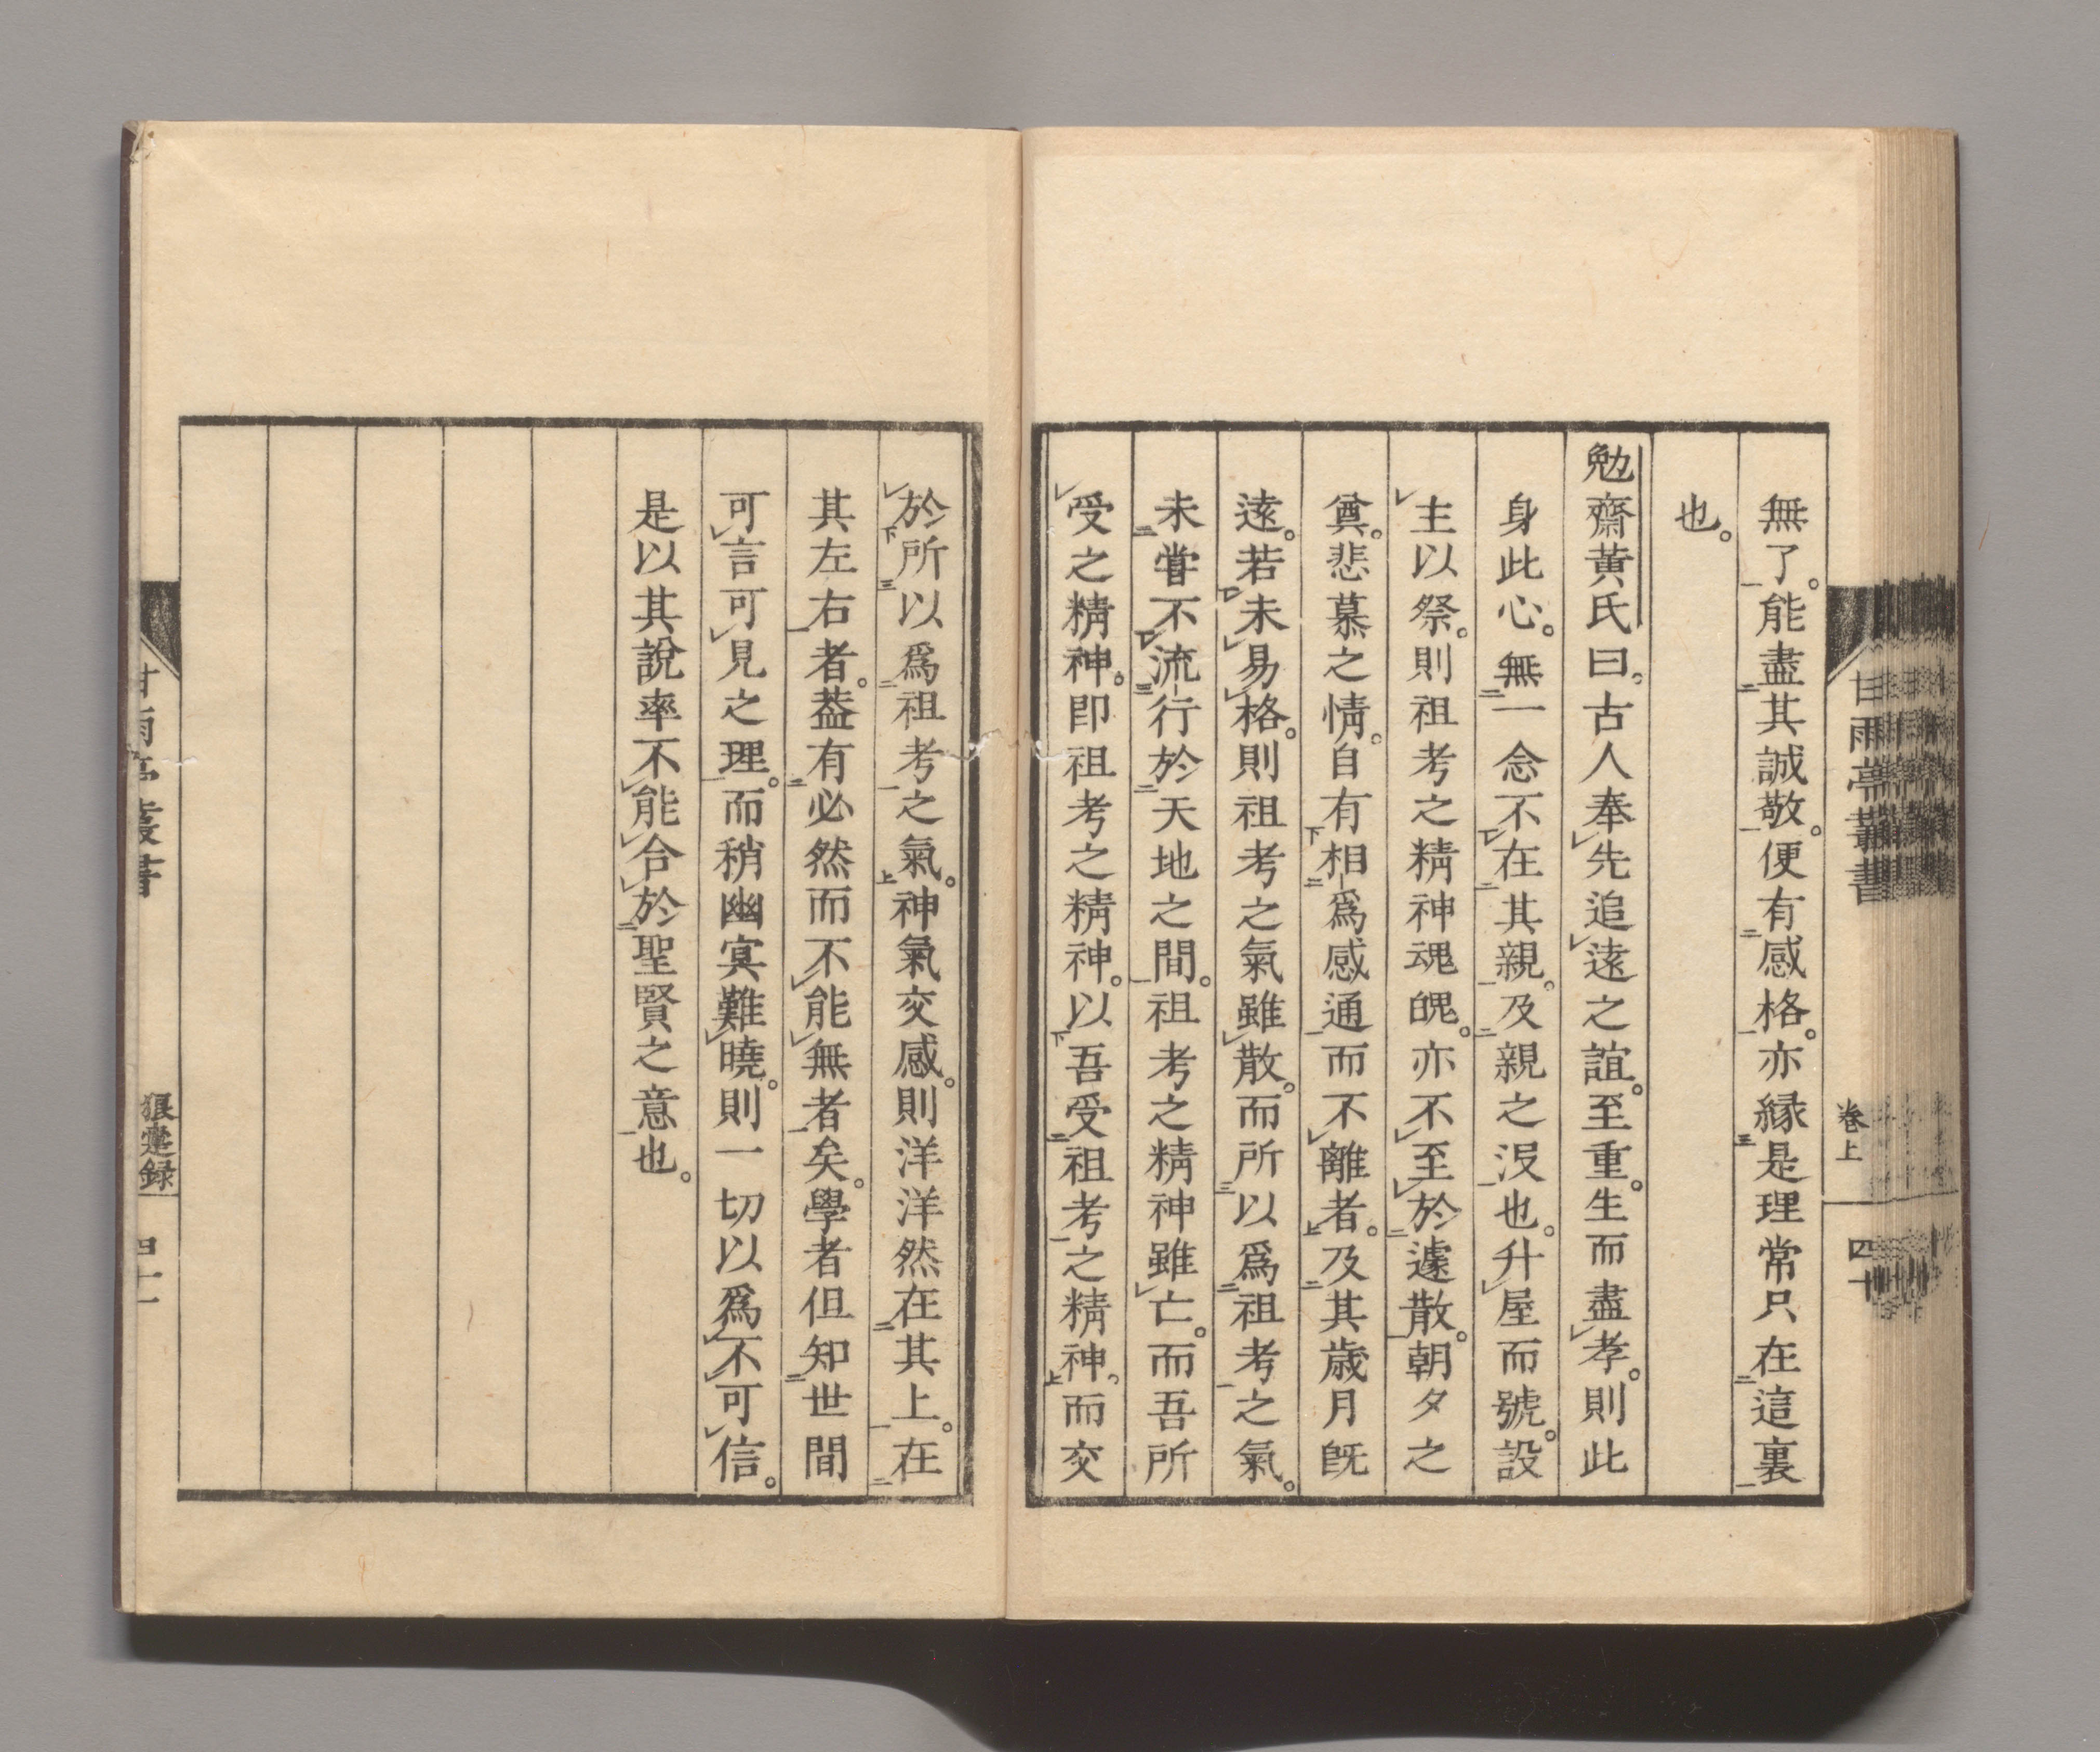 無了。能盡其誠敬。便有感格。亦縁是理常只在這裏
也。
勉齋黄氏曰。古人奉先追遠之誼。至重。生而盡孝。則此
身此心。無一念不在其親。及親之沒也。升屋而號。設
主以祭。則祖考之精神魂魄。亦不至於遽散。朝夕之
奠。悲慕之情。自有相爲感通而不離者。及其歳月旣
遠。若未易格。則祖考之氣雖散。而所以爲祖考之氣。
未嘗不流行於天地之間。祖考之精神雖亡。而吾所
受之精神。即祖考之精神。以吾受祖考之精神。而交
甘雨亭叢書
卷上
四十
於所以爲祖考之氣。神氣交感。則洋洋然在其上。在
其左右者。葢有必然而不能無者矣。學者但知世間
可言可見之理。而稍幽冥難曉。則一切以爲不可信。
是以其說率不能合於聖賢之意也。
甘雨亭叢書
狼疐録
四十一